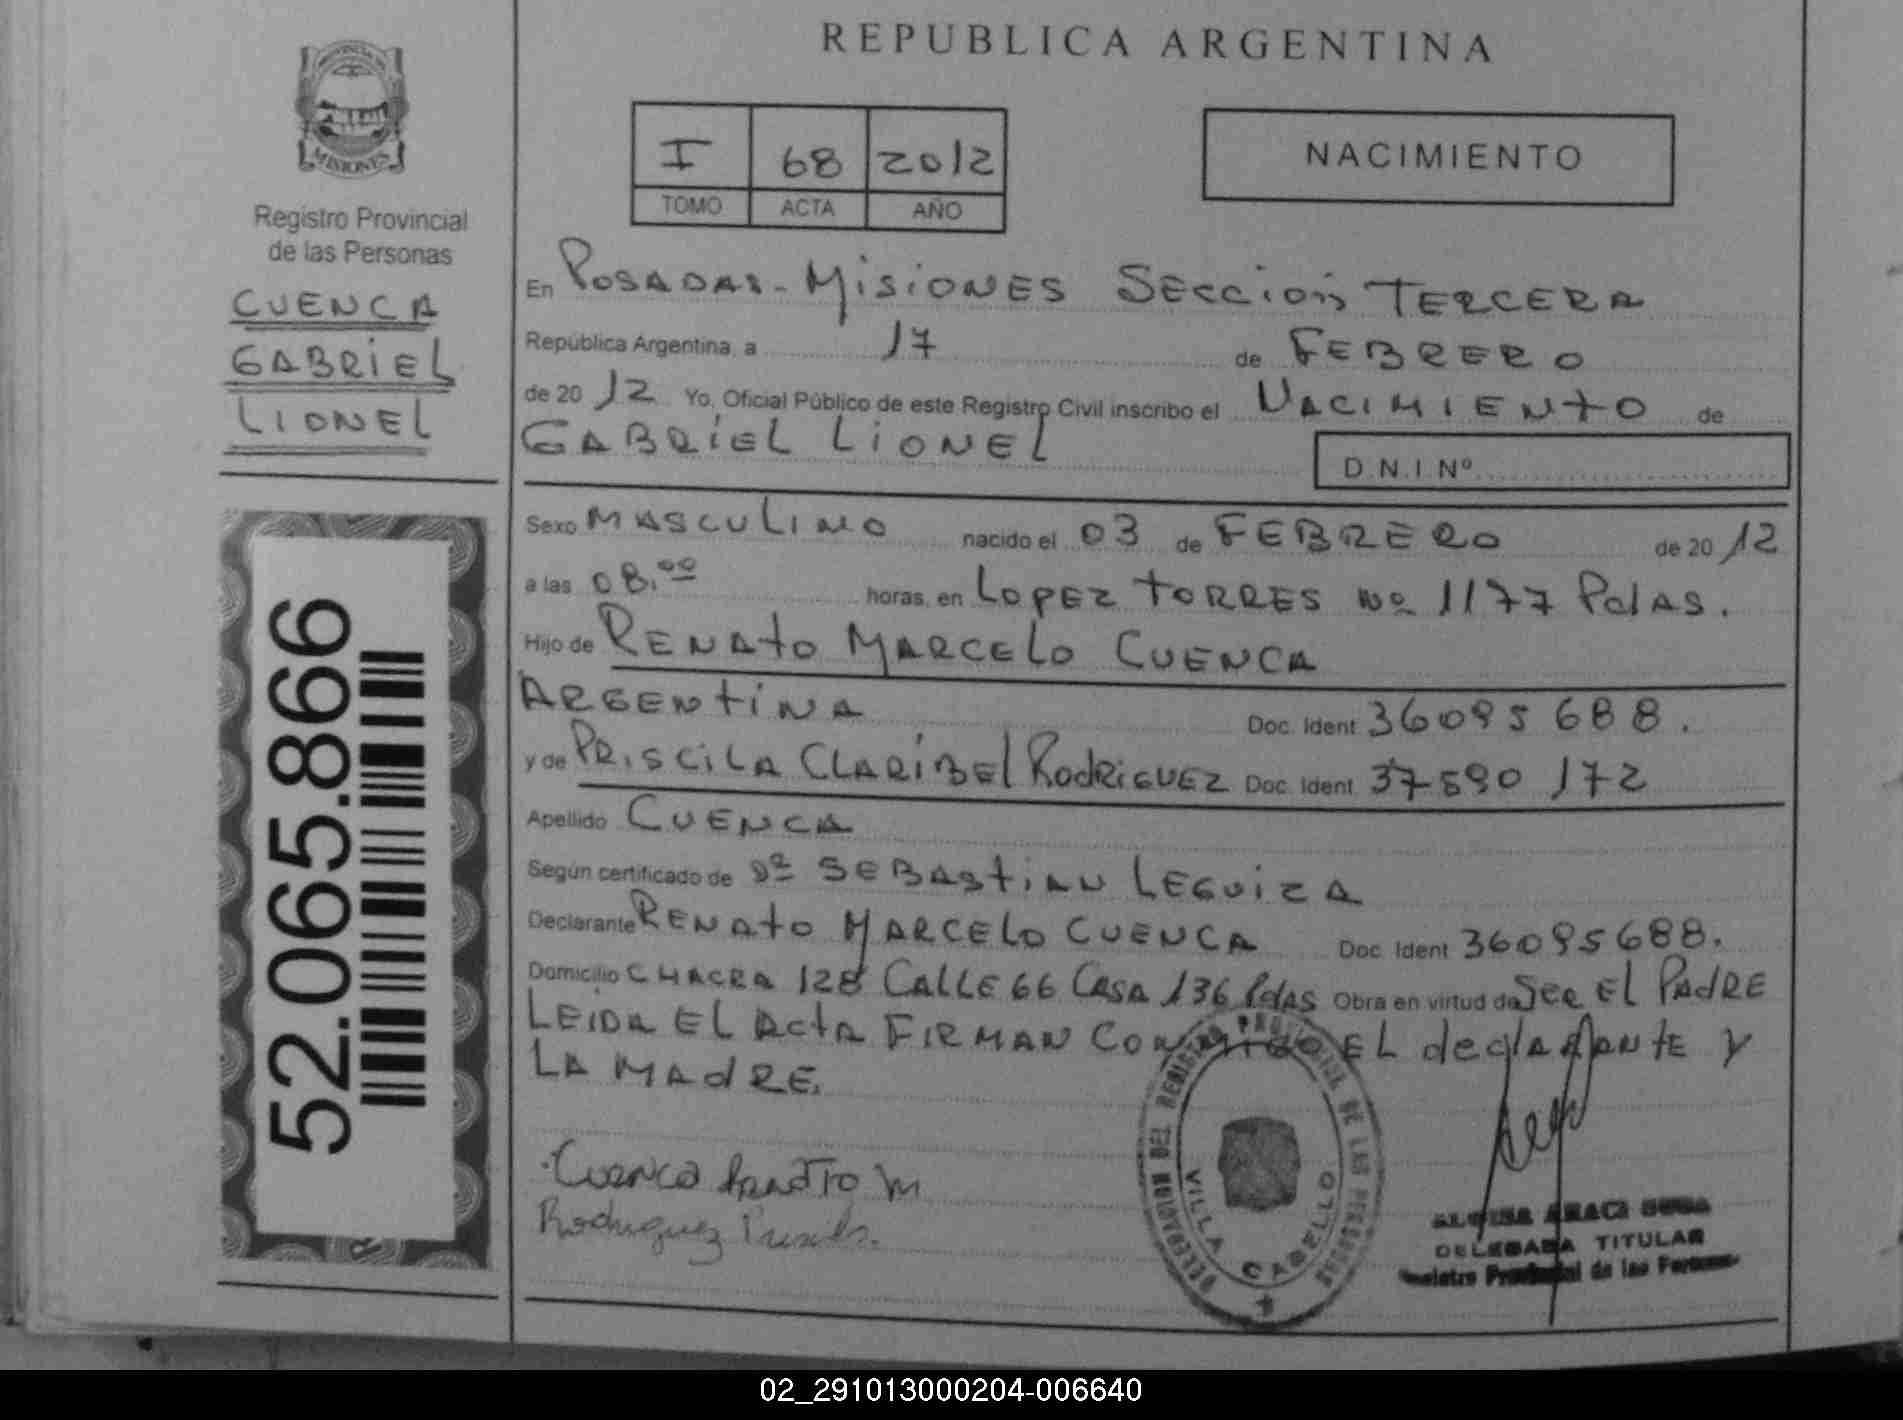 REPUBLICA ARGENTINA
PROVINCIA DE
MISIONES
Registro Provincial
de las Personas
CUENCA
GABRIEL
LIONEL
52.065.866
I 68 2012
TOMO ACTA AÑO
NACIMIENTO
En POSADAS - MISIONES SECCION TERCERA
República Argentina, a 17 de FEBRERO
de 20 12 Yo, Oficial Público de este Registro Civil inscribo el NACIMIENTO de
GABRIEL LIONEL
D.N.I. Nº
Sexo MASCULINO nacido el 03 de FEBRERO de 20 12
a las 08.00 horas, en LOPEZ TORRES Nº 1177 PdAS.
Hijo de RENATO MARCELO CUENCA
ARGENTINA Doc. Ident 36095688.
y de PRISCILA CLARIBEL RODRIGUEZ Doc. Ident 37590172
Apellido CUENCA
Según certificado de Dº SEBASTIAN LEGUIZA
Declarante RENATO MARCELO CUENCA Doc. Ident 36095688.
Domicilio CHACRA 128 CALLE 66 CASA 136 PdAS Obra en virtud de SER EL PADRE
LEIDA EL ACTA FIRMAN CONMIGO EL declARANTE Y
LA MADRE.
Cuenca Renato M
Rodriguez
DEL REGISTRO PROVINCIAL DE LAS PERSONAS
VILLA CABELLO
ARACI
DELEGADA TITULAR
Registro Provincial de las Personas
02_291013000204-006640